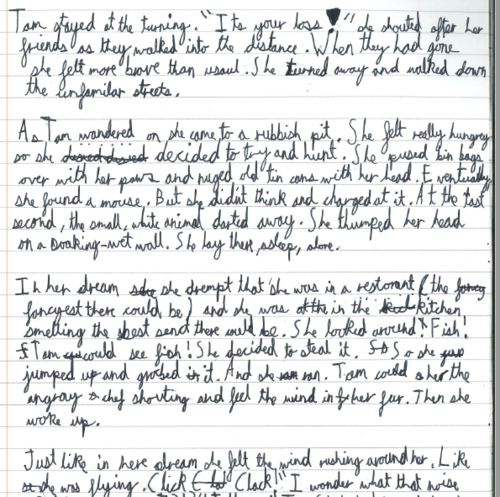 Tam stayed at the turning. "It's your loss!" she shouted after her
friends as they walked into the distance. When they had gone
she felt more brave than usaul. She turned away and walked down
the unfamilar streets.
As Tam wandered on she came to a rubbish pit. She felt really hungray
so she decided to try and hunt. She pused bin bags
over with her paws and nuged old tin cans with her head. Eventually
she found a mouse. But she didn't think and charged at it. At the last
second, the small, white animal darted away. She thumped her head
on a soaking-wet wall. She lay there, asleep, alone.
In her dream she drempt that she was in a restorant (the
fancyest there could be) and she was in the kitchen
smelling the best send there could be. She looked around. Fish!
Tam could see fish! She decided to steal it. So she
jumped up and grabed it. And she ran. Tam could her the
angray chef shouting and feel the wind in her fur. Then she
woke up.
Just like in here dream she felt the wind rushing around her. Like
she was flying. Click Clack "I wonder what that noise